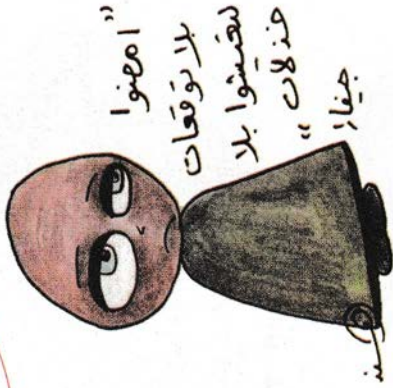 "امضوا
بلا توقعات
لتعيشوا بلا
خذلان"